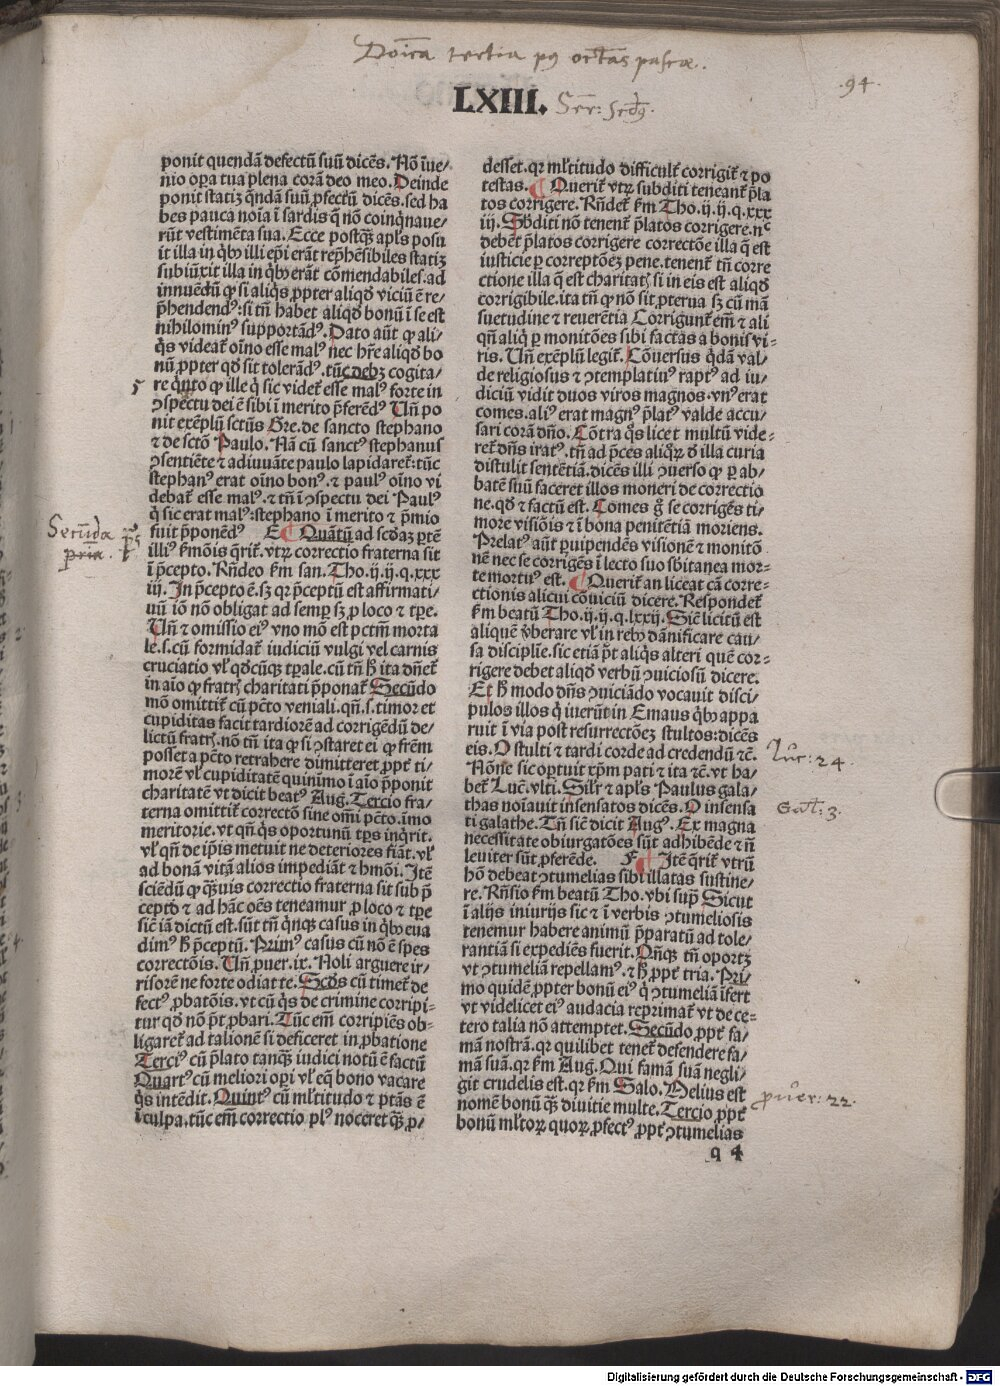 Doīca tertia pꝰ octās pascæ.
.94.
LXIII. Ser: 
ponit quendā defectū suū dicēs. Nō īue/
nio oꝑa tua plena corā deo meo. Deinde
ponit statiz q̄ndā suū ꝓfectū dicēs. sed ha
bes pauca noīa ī sardis q̄ nō coinq̄naue/
rūt vestimēta sua. Ecce postq̄ꝫ apl̄s posu
it illa in qͥbꝰ illi ep̄i erāt rep̄hēsibiles statiz
subiūxit illa in qͥbꝰ erāt cōmendabiles. ad
innuēdū ꝙ si aliq̄s ꝓpter aliqd̄ viciū ē re/
p̄hendendꝰ: si tn̄ habet aliqd̄ bonū ī se est
nihilominꝰ supportādꝰ. Dato aūt ꝙ ali/
q̄s videat̄ oīno esse malꝰ nec hr̄e aliqd̄ bo
nū ꝓpter qd̄ sit tolerādꝰ. tūc debꝫ cogita/
5
re q̄nto ꝙ ille q̄ sic videt̄ esse malꝰ forte in
ꝯspectu dei ē sibi ī merito p̄ferēdꝰ Un̄ po
nit exēplū sctūs Gre. de sancto stephano
⁊ de sctō Paulo. Nā cū sanctꝰ stephanus
ꝯsentiēte ⁊ adiuuāte paulo lapidaret̄: tūc
stephanꝰ erat oīno bonꝰ. ⁊ paulꝰ oīno vi
debat̄ esse malꝰ. ⁊ tn̄ ī ꝯspectu dei Paulꝰ
q̄ sic erat malꝰ: stephano ī merito ⁊ p̄mio
fuit p̄ponēdꝰ E Quātū ad scd̄aꝫ ꝑtē
Secūda
p̄ria.
illiꝰ ẜmōis q̄rit̄. vtꝝ correctio fraterna sit
ī p̄cepto. Rn̄deo ẜm san. Tho. ij. ij. q. xxx
iij. In p̄cepto ē. sꝫ qꝛ p̄ceptū est affirmati/
uū iō nō obligat ad semꝑ sꝫ ꝓ loco ⁊ tp̄e.
Un̄ ⁊ omissio eiꝰ vno mō est pctm̄ morta
le. s. cū formidat̄ iudiciū vulgi vel carnis
cruciatio vl̓ qd̄cūqꝫ tp̄ale. cū tn̄ ħ ita dn̄et̄
in aīo ꝙ fratrꝭ charitati p̄ponat̄ Secūdo
mō omittit̄ cū pctō veniali. qn̄. s. timor et
cupiditas facit tardiorē ad corrigēdū de/
lictū fratrꝭ. nō tn̄ ita ꝙ si ꝯstaret ei ꝙ fr̄em
posset a pctō retrahere dimitteret ꝓpt̄ ti/
morē vl̓ cupiditatē quinīmo ī aīo p̄ponit
charitatē vt dicit beatꝰ Aug. Tercio fra/
terna omittit̄ correctō sine om̄i pctō. īmo
meritorie. vt qn̄ q̄s oportunū tp̄s inq̄rit.
vl̓ qn̄ de ip̄is metuit ne deteriores fiāt. vl̓
ad bonā vitā alios impediāt ⁊ hmōi. Itē
sciēdū ꝙ q̄ꝫuis correctio fraterna sit sub p̄
ceptō ⁊ ad hāc oēs teneamur ꝓ loco ⁊ tp̄e
sic̄ iā dictū est. sūt tn̄ q̄nqꝫ casus in qͥbꝰ eua
dimꝰ ħ p̄ceptū. Primꝰ casus cū nō ē spes
correctōis. Un̄ ꝓuer. ix. Noli arguere ir/
risorē ne forte odiat te. Scd̄s cū timet̄ de
fectꝰ ꝓbatōis. vt cū q̄s de crimine corripi/
tur qd̄ nō pt̄ ꝓbari. Tūc em̄ corripiēs ob/
ligaret̄ ad talionē si deficeret in ꝓbatione
Terciꝰ cū p̄lato tanq̄ꝫ iudici notū ē factū
Quartꝰ cū meliori oꝑi vl̓ eq̄ bono vacare
q̄s intēdit. Quintꝰ cū ml̓titudo ⁊ ptās ē
ī culpa. tūc em̄ correctio plꝰ noceret q̄ꝫ ꝓ/
desset. qꝛ ml̓titudo difficult̓ corrigit̄ ⁊ po
testas. Querit̄ vtꝝ subditi teneant̄ p̄la
tos corrigere. Rn̄det̄ ẜm Tho. ij. ij. q. xxx
iij. Sb̄diti nō tenent̄ p̄latos corrigere. nec
debet p̄latos corrigere correctōe illa q̄ est
iusticie ꝑ correptōeꝫ pene. tenent̄ tn̄ corre
ctione illa q̄ est charitatꝭ si in eis est aliqd̄
corrigibile. ita tn̄ ꝙ nō sit ꝓterua sꝫ cū mā
suetudine ⁊ reuerētia Corrigunt̄ em̄ ⁊ ali
qn̄ aliq̄ ꝑ monitōes sibi factas a bonis vi/
ris. Un̄ exēplū legit̄. Cōuersus q̄dā val/
de religiosus ⁊ ꝯtemplatiuꝰ raptꝰ ad iu/
diciū vidit duos viros magnos. vnꝰ erat
comes. aliꝰ erat magnꝰ p̄latꝰ valde accu/
sari corā dn̄o. Cōtra q̄s licet multū vide/
ret̄ dn̄s iratꝰ. tn̄ ad p̄ces aliqꝝ d̓ illa curia
distulit sentētiā. dicēs illi ꝯuerso ꝙ ꝑ ab/
batē suū faceret illos moneri de correctio
ne. qd̄ ⁊ factū est. Comes ḡ se corrigēs ti/
more visiōis ⁊ ī bona penitētiā moriens.
Prelatꝰ aūt ꝑuipendēs visionē ⁊ monitō
nē nec se corrigēs ī lecto suo sb̄itanea mor/
te mortuꝰ est. Querit̄ an liceat cā corre/
ctionis alicui cōuiciū dicere. Respondet̄
ẜm beatū Tho. ij. ij. q. lxxij. Sic̄ licitū est
aliquē v̓berare vl̓ in rebꝰ dānificare cau/
sa disciplie. sic etiā pt̄ aliq̄s alteri quē cor/
rigere debet aliqd̄ verbū ꝯuiciosū dicere.
Et ħ modo dn̄s ꝯuiciādo vocauit disci/
pulos illos q̄ iuerūt in Emaus qͥbꝰ appa
ruit ī via post resurrectōeꝫ stultos: dicēs
eis. O stulti ⁊ tardi corde ad credendū ⁊c̄.
Luc: 24.
Nōne sic oꝑtuit xp̄m pati ⁊ ita ⁊c̄. vt ha/
bet̄ Luc̄. vlti. Sil̓r ⁊ apl̄s Paulus gala/
Gal: 3.
thas noīauit insensatos dicēs. O insensa
ti galathe. Tn̄ sic̄ dicit Augꝰ. Ex magna
necessitate obiurgatōes sūt adhibēde ⁊ nō
leuiter sūt ꝓferēde. F Itē q̄rit̄ vtrū
hō debeat ꝯtumelias sibi illatas sustine/
re. Rn̄sio ẜm beatū Tho. vbi supͣ Sicut
ī alijs iniurijs sic ⁊ ī verbis ꝯtumeliosis
tenemur habere animū p̄paratū ad tole/
rantiā si expediēs fuerit. Qn̄qꝫ tn̄ oportꝫ
vt ꝯtumeliā repellamꝰ. ⁊ ħ ꝓpt̄ tria. Pri/
mo quidē ꝓpter bonū eiꝰ q̄ ꝯtumeliā īfert
vt videlicet eiꝰ audacia reprimat̄ vt de ce/
tero talia nō attemptet. Secūdo ꝓpt̄ fa/
mā nostrā. qꝛ quilibet tenet̄ defendere fa/
mā suā. qꝛ ẜm Aug. Qui famā suā negli/
git crudelis est. qꝛ ẜm Salo. Melius est
prouer: 22.
nomē bonū q̄ꝫ diuitie multe. Tercio ꝓpt̄
bonū ml̓toꝝ quoꝝ ꝓfectꝰ ꝓpt̄ ꝯtumelias
q 4
Digitalisierung gefördert durch die Deutsche Forschungsgemeinschaft - DFG